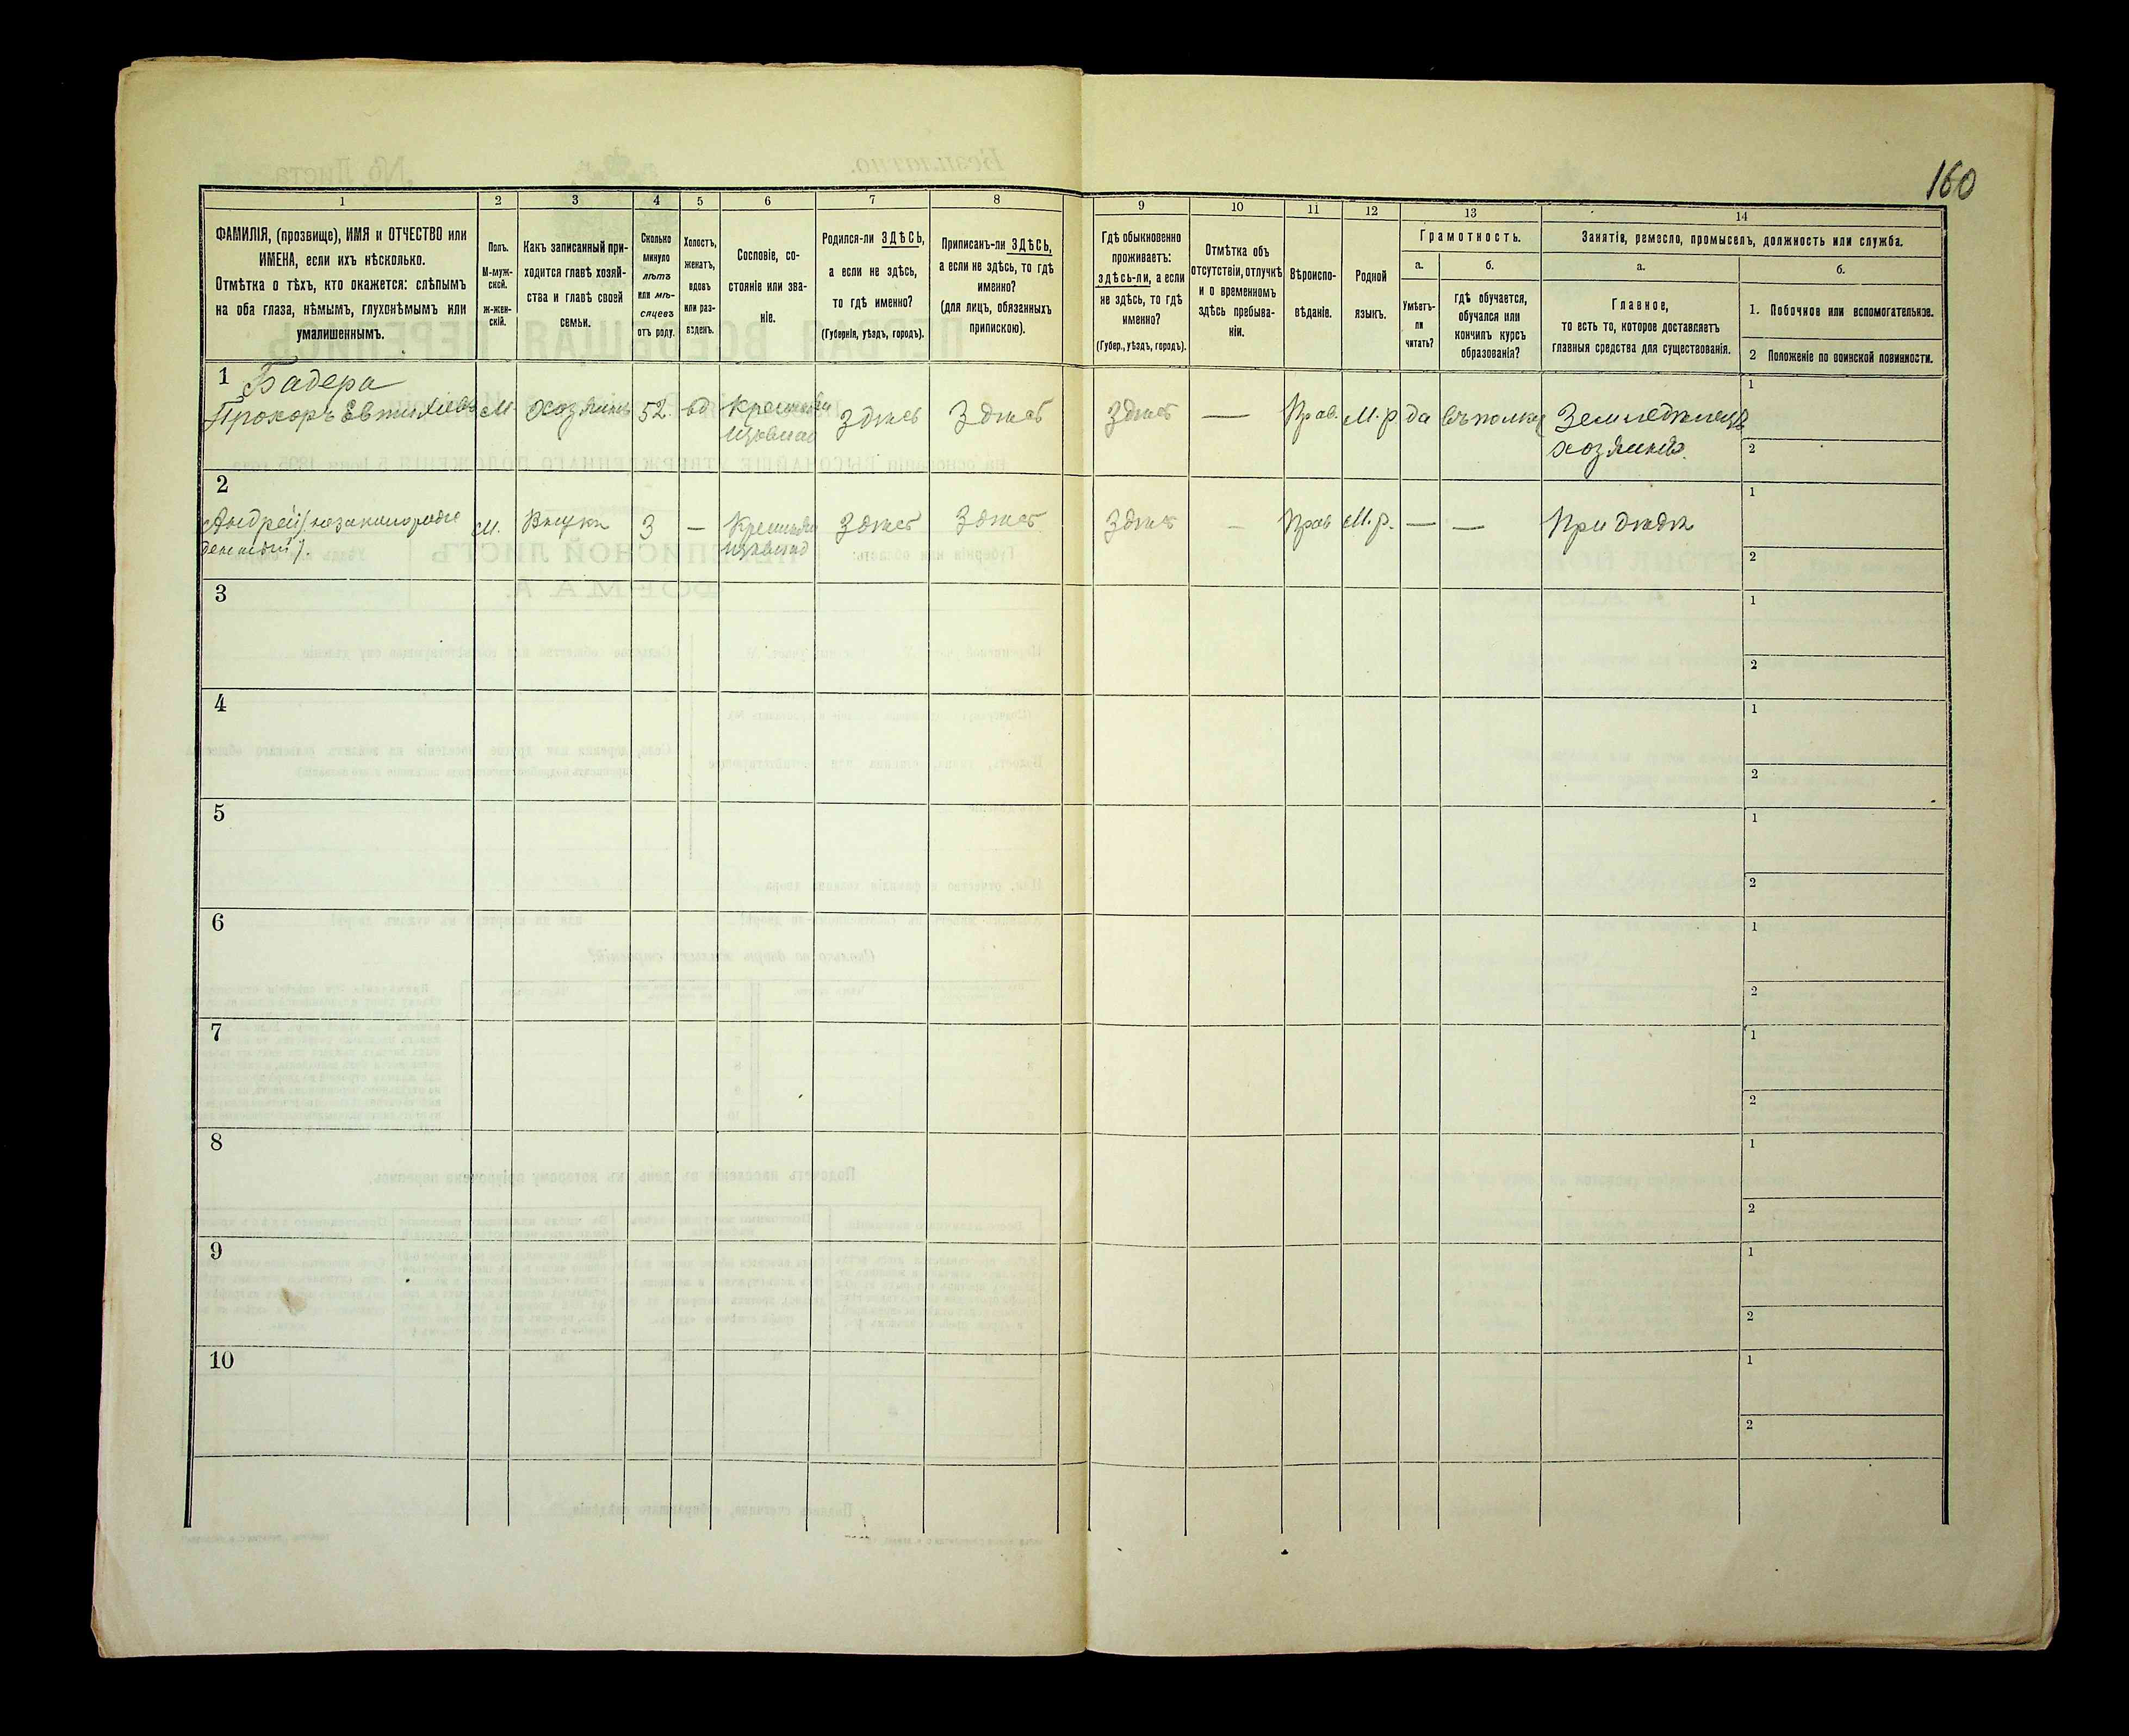 160
1
2
3
4
5
6
7
8
9
10
11
12
13
14
ФАМИЛІЯ, (прозвище), ИМЯ и ОТЧЕСТВО или
ИМЕНА, если ихъ нѣсколько.
Отмѣтка о тѣхъ, кто окажется: слѣпымъ
на оба глаза, нѣмымъ, глухонѣмымъ или
умалишеннымъ.
Полъ.
М-муж-
ской.
ж-жен-
скій.
Какъ записанный при-
ходится главѣ хозяй-
ства и главѣ своей
семьи.
Сколько
минуло
лѣтъ
или мѣ-
сяцевъ
отъ роду.
Холостъ,
женатъ,
вдовъ
или раз-
веденъ.
Сословіе, со-
стояніе или зва-
ніе.
Родился-ли ЗДѢСЬ,
а если не здѣсь,
то гдѣ именно?
(Губернія, уѣздъ, городъ).
Приписанъ-ли ЗДѢСЬ,
а если не здѣсь, то гдѣ
именно?
(для лицъ, обязанныхъ
припискою).
Гдѣ обыкновенно
проживаетъ:
здѣсь-ли, а если
не здѣсь, то гдѣ
именно?
(Губер., уѣздъ, городъ).
Отмѣтка объ
отсутствіи, отлучкѣ
и о временномъ
здѣсь пребыва-
ніи.
Вѣроиспо-
вѣданіе.
Родной
языкъ.
Грамотность.
а.
Умѣетъ-
ли
читать?
б.
гдѣ обучается,
обучался или
кончилъ курсъ
образованія?
Занятія, ремесло, промыселъ, должность или служба.
а.
Главное,
то есть то, которое доставляетъ
главныя средства для существованія.
б.
1. Побочное или вспомогательное.
2 Положеніе по воинской повинности.
1 Бадера
Прохоръ Евтихіевъ М. Хозяинъ 52. вд Крестьян Здѣсь Здѣсь Здѣсь — Прав. М.р. да въ полку Земледѣлецъ
хозяинъ.
1
2
2
Андрей М. Внукъ 3 — Здѣсь Здѣсь Здѣсь — Прав М.р. — — При дѣдѣ
1
2
3
1
2
4
1
2
5
1
2
6
1
2
7
1
2
8
1
2
9
1
2
10
1
2